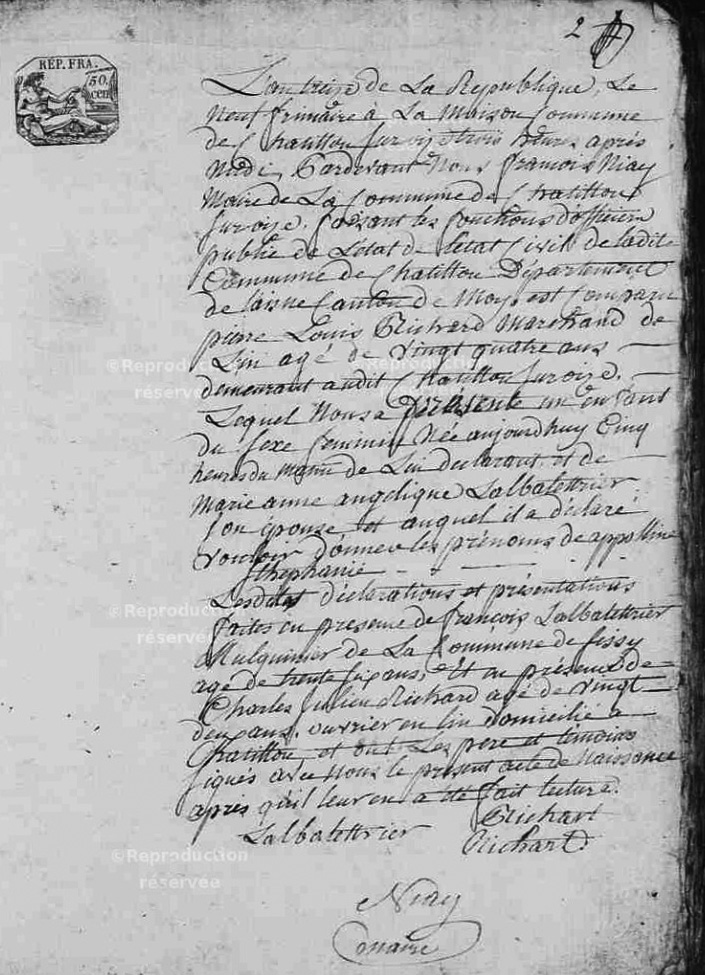 2
RÉP. FRA.
50
cen
L'an treize de La République, Le
neuf frimaire à La Maison Commune
de Chatillon sur oise trois heures après
midi, Pardevant Nous françois Niay
Maire de La Commune de Chatillon
sur oise, faisant les fonctions d'officier
public de Letat de Létat Civil de ladite
Commune de Chatillon Département
de laisne Canton de Moy, est Comparu
pierre Louis Richard Marchand de
Lin agé de vingt quatre ans
demeurant audit Chatillon sur oise.
Lequel Nous a présenté un enfant
du sexe feminin Née aujourdhuy Cinq
heures du matin de Lui déclarant, et de
Marie anne angelique Lalbalettrier
son épouse et auquel il a déclaré
vouloir donner les prénoms de appolline
sthephanie
Lesdites déclarations et présentations
faites en presence de françois Lalbalettrier
Mulquinier de La Commune de
agé de trente six ans, Et en présence de
Charles Julien Richard agé de vingt
deux ans, ouvrier en lin domicilié a
Chatillon et ont Les pere et témoins
signés avec Nous le présent acte de Naissance
après qu'il leur en a été fait lecture.
Richart
Lalbalettrier Richart
Niay
maire
©Reproduction
réservée
©Reproduction
réservée
©Reproduction
réservée
©Reproduction
réservée
©Reproduction
réservée